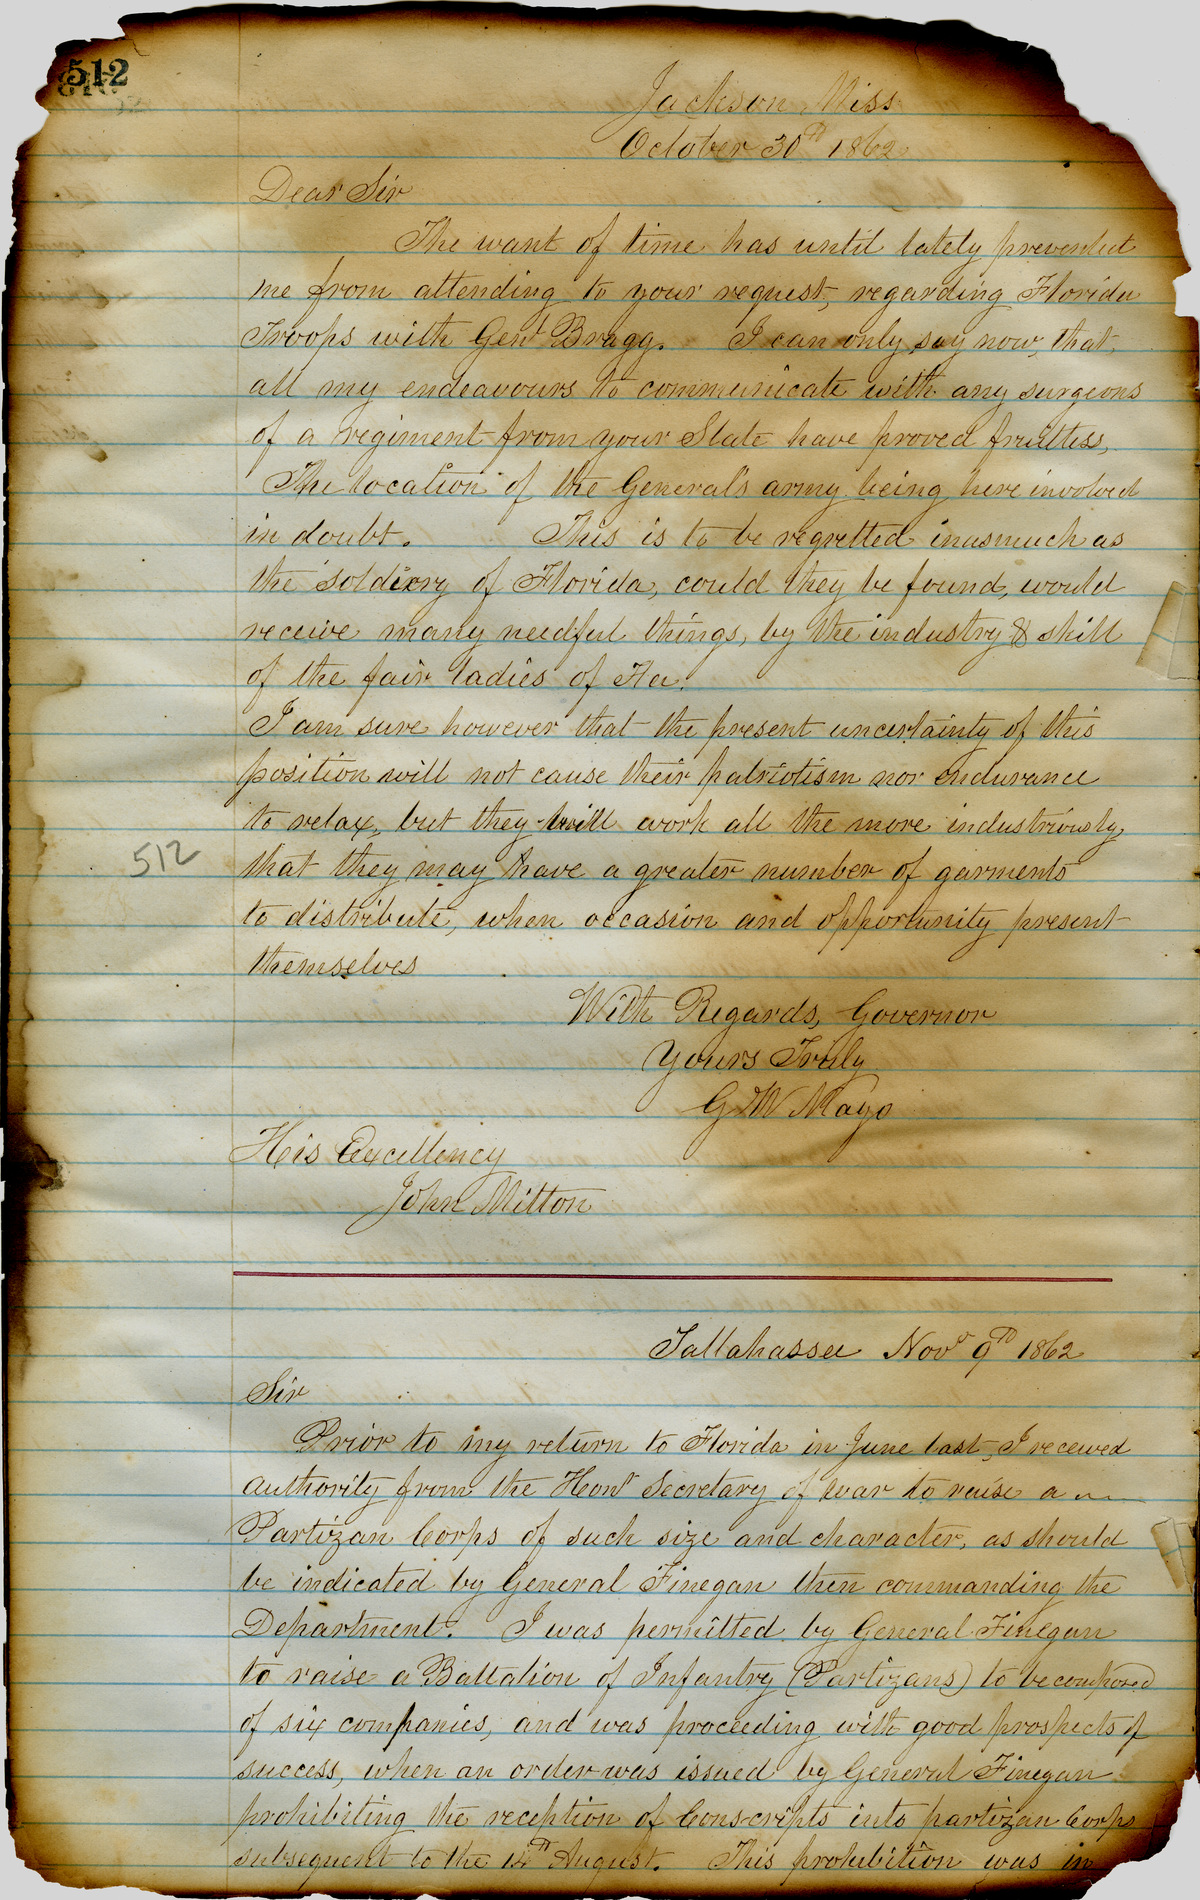 512
Jackson, Miss
October 30th 1862
Dear Sir
The want of time has until lately prevented
me from attending to your request, regarding Florida
Troops with Genl Bragg. I can only say now, that
all my endeavours to communicate with any surgeons
of a regiment from your State have proved fruitless,
The location of the General's army being here involved
in doubt. This is to be regretted inasmuch as
the soldiery of Florida, could they be found, would
receive many needful things, by the industry & skill
of the fair ladies of Fla.
I am sure however that the present uncertainty of this
position will not cause their patriotism nor endurance
to relax, but they will work all the more industriously,
512
that they may have a greater number of garments
to distribute, when occasion and opportunity present
themselves
With Regards, Governor
Yours Truly
G W Mayo
His Excellency
John Milton
Tallahassee Novr 9th 1862
Sir
Prior to my return to Florida in June last, I received
authority from the Honl Secretary of War to raise a
Partizan Corps of such size and character, as should
be indicated by General Finegan then commanding the
Department. I was permitted by General Finegan
to raise a Battalion of Infantry (Partizans) to be composed
of six companies, and was proceeding with good prospects of
success, when an order was issued by General Finegan
prohibiting the reception of Conscripts into partizan Corps
subsequent to the 14th August. This prohibition was in